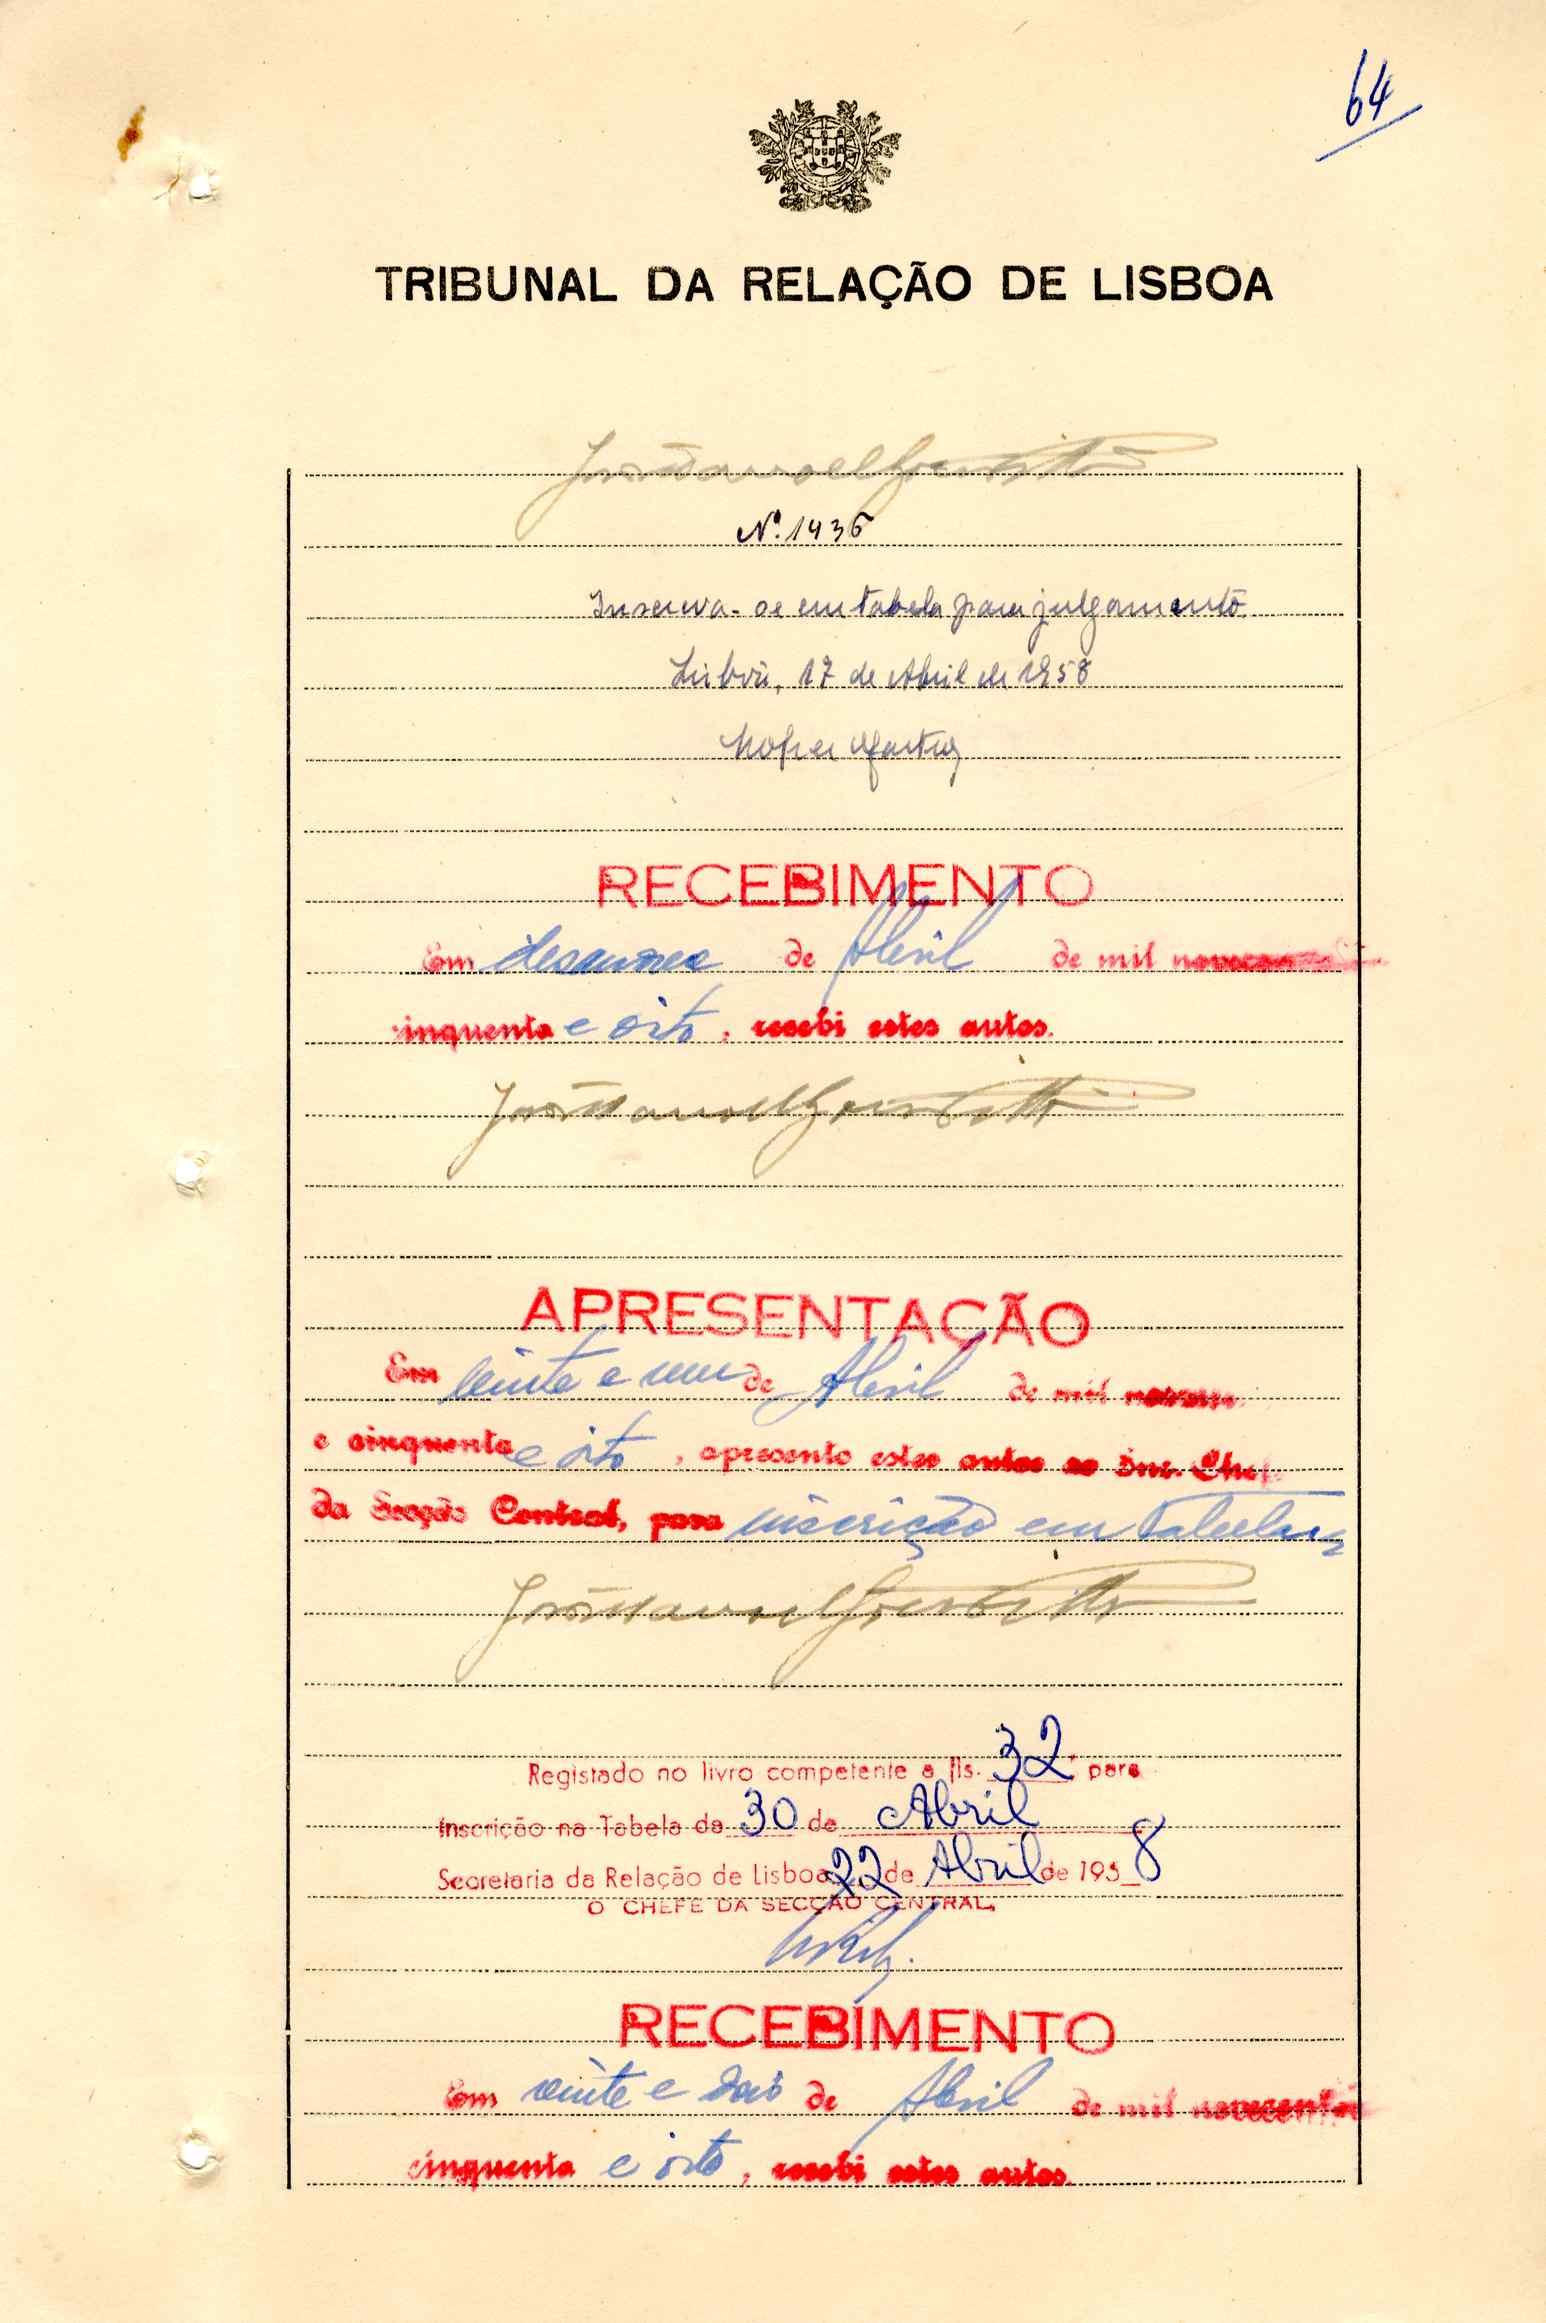 64
TRIBUNAL DA RELAÇÃO DE LISBOA
Nº. 1436
Inscreva-se em tabela para julgamento.
Lisboa, 17 de Abril de 1958
RECEBIMENTO
Em de Abril de mil
cinquenta e oito, recebi estes autos.
APRESENTAÇÃO
Em vinte e um de Abril de mil
e cinquenta e oito, apresento estes autos ao Snr. Chefe
da Secção Central, para inscrição em tabela
Registado no livro competente a fls. 32 para
inscrição na Tabela de 30 de Abril
Secretaria da Relação de Lisboa 22 de Abril de 1958
O CHEFE DA SECÇÃO CENTRAL,
RECEBIMENTO
Em vinte e dois de Abril de mil novecentos
cinquenta e oito, recebi estes autos.